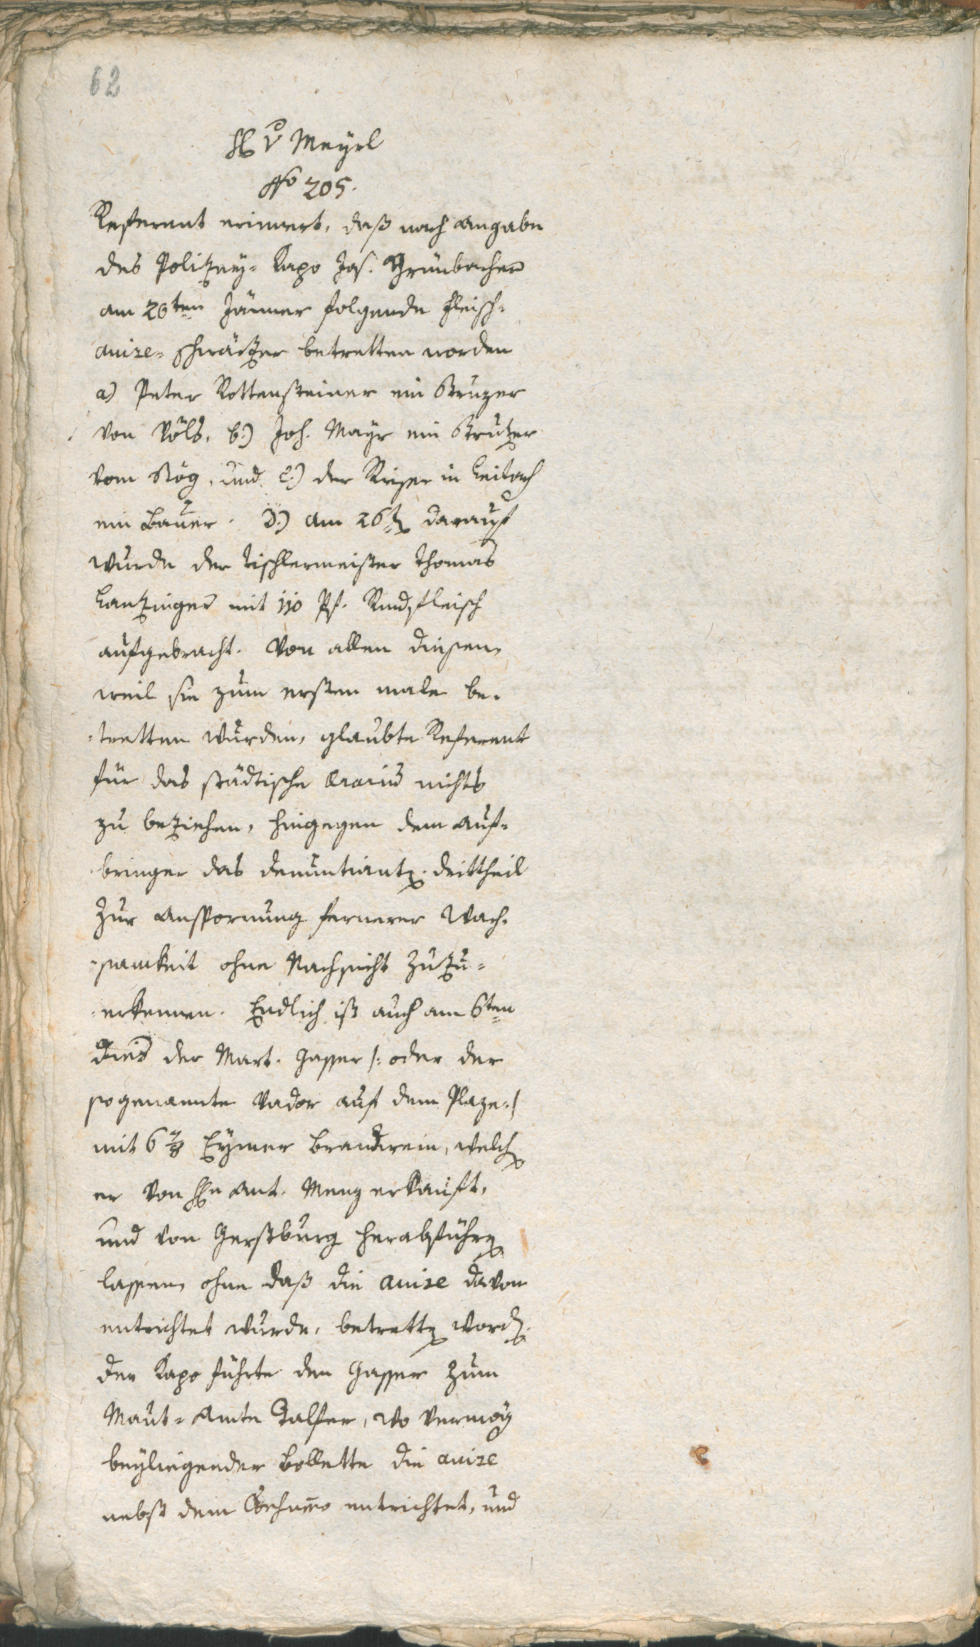 62
H v Meyrl
No 205.
Referent erinnert, daß nach Angabe
des Polizey-Kapo Jos. Grünbacher
am 20ten Jänner folgende Fleisch-
accise-Schwärzer betretten worden
a) Peter Rottensteiner ein Strutzer
von Völs, b.) Joh. Mayr ein Strutzer
vom Stög, und c.) der Riser in Leitach
ein Bauer. d.) Am 26t darauf
wurde der Tischlermeister Thomas
Lantzinger mit 110 Pf. Rindfleisch
aufgebracht. Von allen diesen,
weil sie zum ersten male be-
tretten wurden, glaubte Referent
für das städtische Erarium nichts
zu beziehen, hingegen dem Auf-
bringer das Denuntiant drittheil
zur Anspornung fernerer Wach-
samkeit ohne Nachsicht zuzu-
erkennen. Endlich ist auch am 6ten
dies der Mart. Gasser /: oder der
sogenannte Vador auf dem Plaze :/
mit 6 Eymer Brandwein, welch
er von Hn Ant. Menz erkauft,
und von Gerstburg herabführ
lassen, ohne daß die accise davon
entrichtet wurde, betrett word.
Der Kapo führte den Gasser zum
Maut-Amte Talfer, wo vermög
beyliegender Bollette die accise
nebst dem entrichtet, und